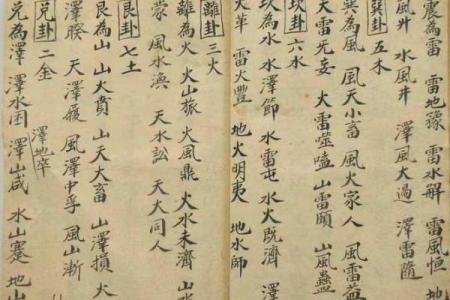 震為雷 雷地豫 雷水解 雷風恒 地
風升 水風井 澤風大過 澤雷隨
巽卦 五木
巽為風 風天小畜 風火家人 風雷益
天雷无妄 火雷噬嗑 山雷頤 山風蠱
坎卦 六水
坎為水 水澤節 水雷屯 水火既濟 澤
火革 雷火豐 地火明夷 地水師
離卦 三火
離為火 火山旅 火風鼎 火水未濟 山水
蒙 風水渙 天水訟 天火同人
艮卦 七土
艮為山 山火賁 山天大畜 山澤損 火
澤睽 天澤履 風澤中孚 風山漸
兌卦 二金
澤地萃
兌為澤 澤水困 澤山咸 水山蹇 地山